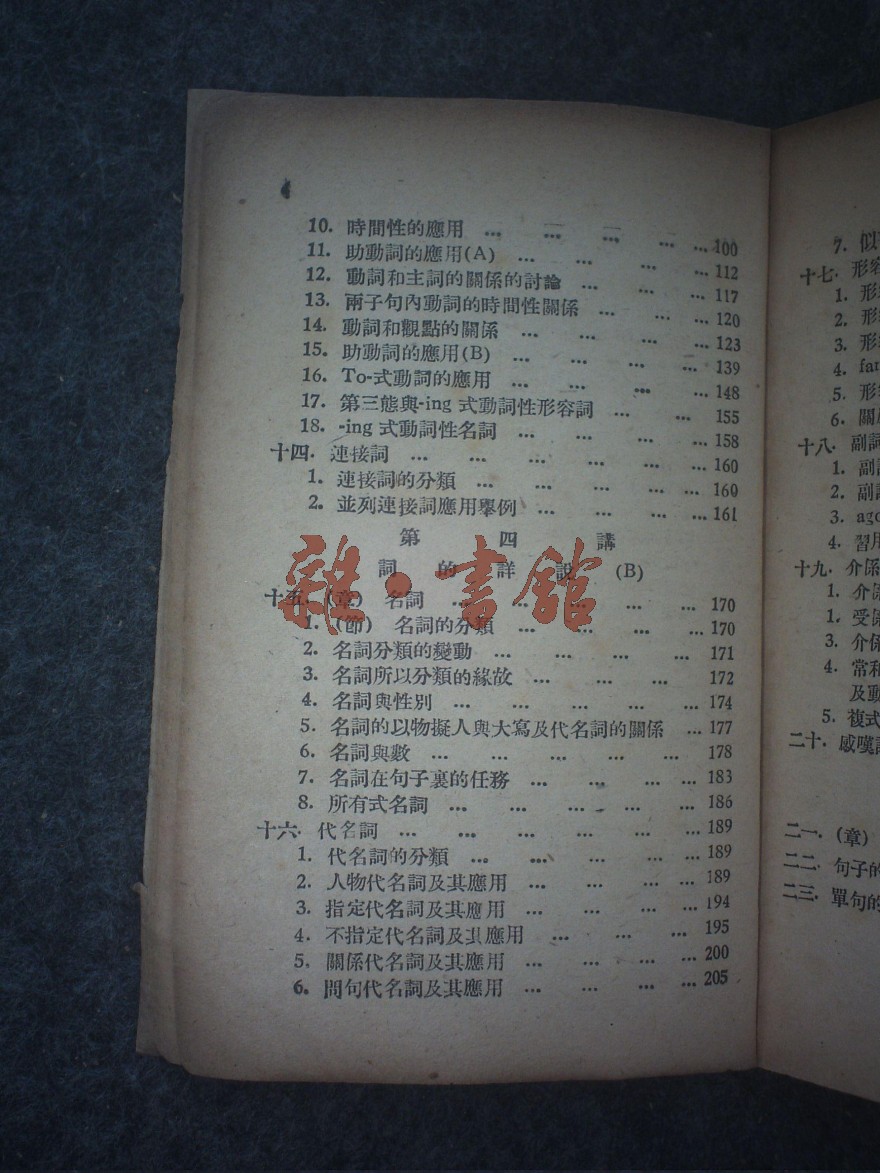 4
10. 時間性的應用 ... ... ... ... ... 100
11. 助動詞的應用(A) ... ... ... ... 112
12. 動詞和主詞的關係的討論 ... ... ... 117
13. 兩子句內動詞的時間性關係 ... ... ... 120
14. 動詞和觀點的關係 ... ... ... ... 123
15. 助動詞的應用(B) ... ... ... ... 139
16. To-式動詞的應用 ... ... ... ... 148
17. 第三態與-ing 式動詞性形容詞 ... ... 155
18. -ing 式動詞性名詞 ... ... ... ... 158
十四. 連接詞 ... ... ... ... ... ... 160
1. 連接詞的分類 ... ... ... ... ... 160
2. 並列連接詞應用舉例 ... ... ... ... 161
第四講
詞的詳說 (B)
雜·書館
十五. (章) 名詞 ... ... ... ... ... 170
1. (節) 名詞的分類 ... ... ... ... 170
2. 名詞分類的變動 ... ... ... ... ... 171
3. 名詞所以分類的緣故 ... ... ... ... 172
4. 名詞與性別 ... ... ... ... ... 174
5. 名詞的以物擬人與大寫及代名詞的關係 ... 177
6. 名詞與數 ... ... ... ... ... ... 178
7. 名詞在句子裏的任務 ... ... ... ... 183
8. 所有式名詞 ... ... ... ... ... 186
十六. 代名詞 ... ... ... ... ... ... 189
1. 代名詞的分類 ... ... ... ... ... 189
2. 人物代名詞及其應用 ... ... ... ... 189
3. 指定代名詞及其應用 ... ... ... ... 194
4. 不指定代名詞及其應用 ... ... ... ... 195
5. 關係代名詞及其應用 ... ... ... ... 200
6. 問句代名詞及其應用 ... ... ... ... 205
7. 似
十七. 形容
1. 形
2. 形
3. 形
4.
5. 形
6. 關
十八. 副詞
1. 副
2. 副
3. ago
4. 習用
十九. 介係
1. 介係
1. 受係
3. 介係
4. 常和
及動
5. 複式
二十. 感嘆
二一. (章)
二二. 句子的
二三. 單句的